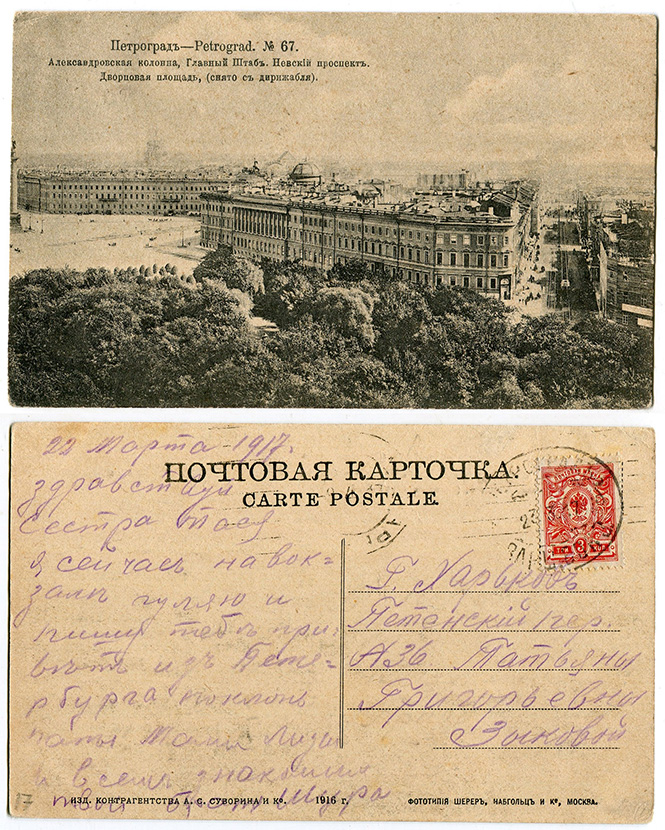 Петроградъ—Petrograd. № 67.
Александровская колонна, Главный Штабъ. Невскій проспектъ.
Дворцовая площадь, (снято съ дирижабля).
22 Марта 1917г.
ПОЧТОВАЯ КАРТОЧКА
CARTE POSTALE.
здравствуй
Сестра Тася
я сейчасъ на вок-
залѣ гуляю и
пишу тебѣ при-
вѣтъ изъ Пете-
рбурга поклонъ
папы Маши Лизы
и всем знакомим
твой брат Шура
Г. Харьковъ
пер.
Татьяны
Григорьевны
Зыковой
3 КОП
17
ИЗД. КОНТРАГЕНТСТВА А. С. СУВОРИНА И Кº. 1916 г.
ФОТОТИПІЯ ШЕРЕРЪ, НАБГОЛЬЦЪ И Кº, МОСКВА.